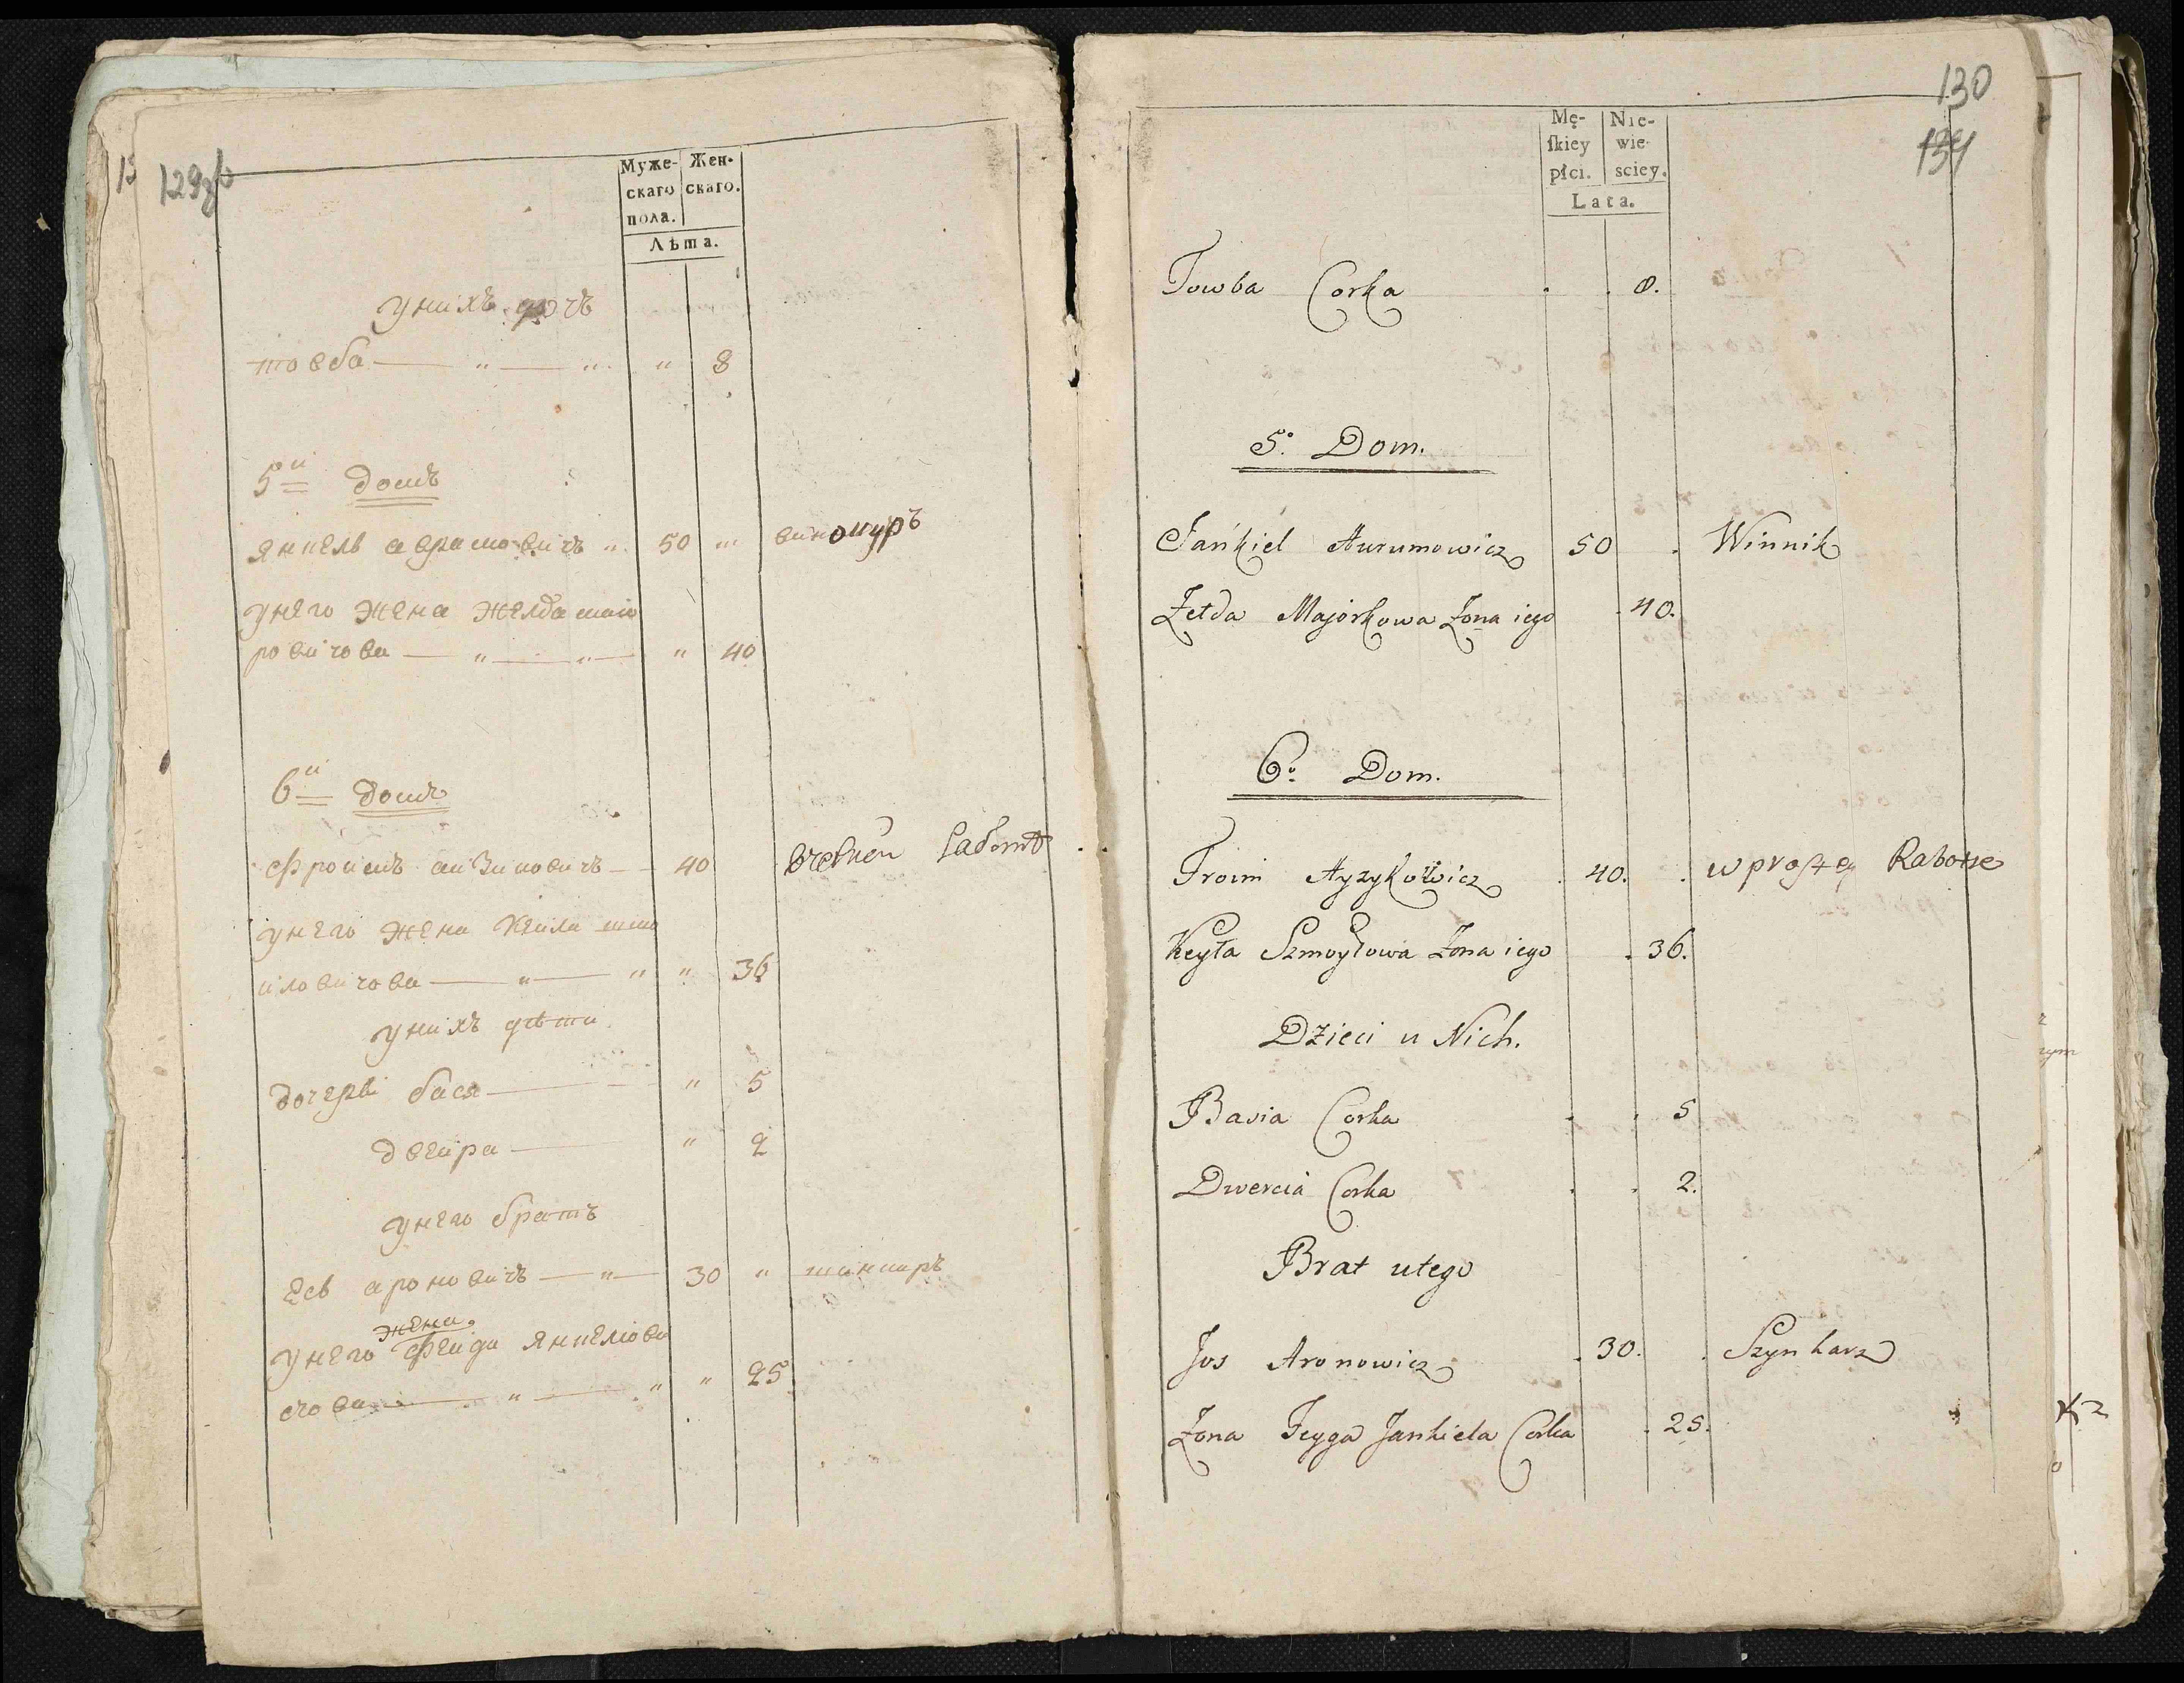 129зв
Муже-
скаго
пола.
Жен-
скаго.
Лѣта.
у нихъ дочь
товба — " — " " 8
5й домъ
янкель аврамовичъ " 50 " винокуръ
у него жена желда маио
ровичова — " — " — " 40
6й домъ
Фроимъ аизиковичъ — 40
у него жена Кеила шмо
иловичова — " — " " 36
у нихъ дѣти
дочери бася — " 5
двеира — " 2
у него братъ
Есь ароновичъ — " — 30 " шинкаръ
жена
у него Феига янкелюви
чова — " — " " 25
130
134
Mę-
ſkiey
płci.
Nie-
wie-
sciey.
Lata.
Towba Corka . . 8.
5o. Dom.
Jańkiel Awrumowicz 50 . Winnik
Zełda Majorkowa Zona iego . 40.
6o. Dom.
Froim Ayzykowicz . 40. . w prostey Rabotse
Keyła Szmoyłowa Zona iego . 36.
Dzieci u Nich.
Basia Corka . . 5
Dwercia Corka . . 2.
Brat utego
Jos Aronowicz . 30. . Szynkarz
Zona Feyga Jankiela Corka . 25.